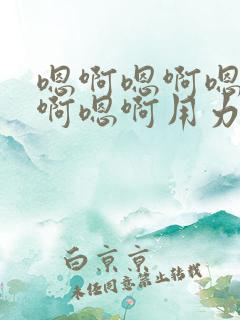 嗯啊嗯啊嗯
啊嗯啊用力
白京京
未经同意禁止转载